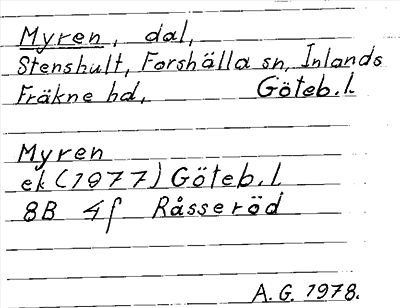 Myren, dal,
Stenshult, Forshälla sn, Inlands
Fräkne hd, Göteb.l.
Myren
ek (1977) Göteb.l.
8B 4f Råsseröd
A.G. 1978.